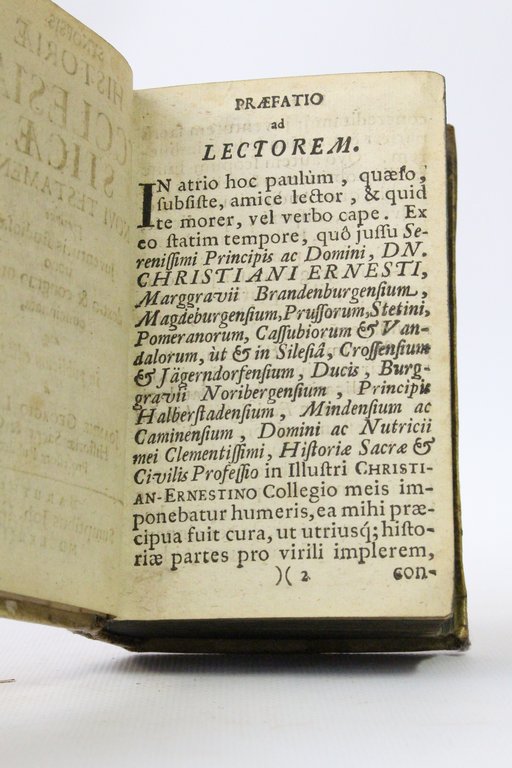 PRÆFATIO
ad
LECTOREM.
IN atrio hoc paulùm, quæſo,
ſubſiſte, amice lector, & quid
te morer, vel verbo cape. Ex
eo ſtatim tempore, quô juſſu Se-
reniſſimi Principis ac Domini, DN.
CHRISTIANI ERNESTI,
Marggravii Brandenburgenſium,
Magdeburgenſium, Pruſſorum, Stetini,
Pomeranorum, Caſſubiorum & Van-
dalorum, ùt & in Sileſiâ, Croſſenſium
& Jägerndorfenſium, Ducis, Burg-
gravii Noribergenſium, Principis
Halberſtadenſium, Mindenſium ac
Caminenſium, Domini ac Nutricii
mei Clementiſſimi, Hiſtoriæ Sacræ &
Civilis Profeſſio in Illuſtri CHRISTI-
AN-ERNESTINO Collegio meis im-
ponebatur humeris, ea mihi præ-
cipua fuit cura, ut utriusq́; hiſto-
riæ partes pro virili implerem,
)( 2 con-